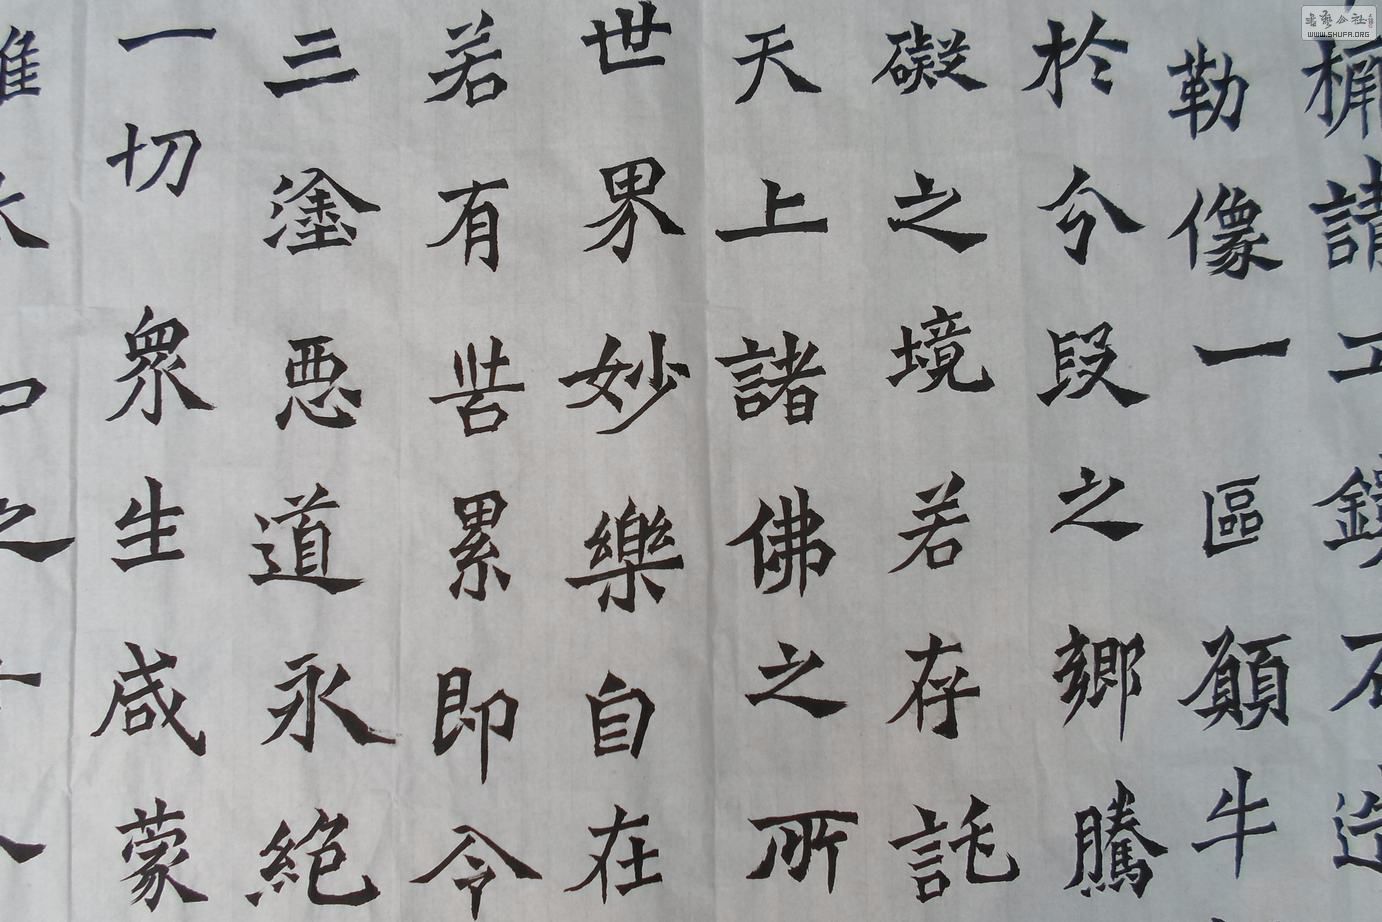 樨請工鏤石造
勒像一區願牛
於分段之鄉騰
礙之境若存託
天上諸佛之所
世界妙樂自在
若有苦累即令
三塗惡道永絕
一切眾生咸蒙
WWW.SHUFA.ORG